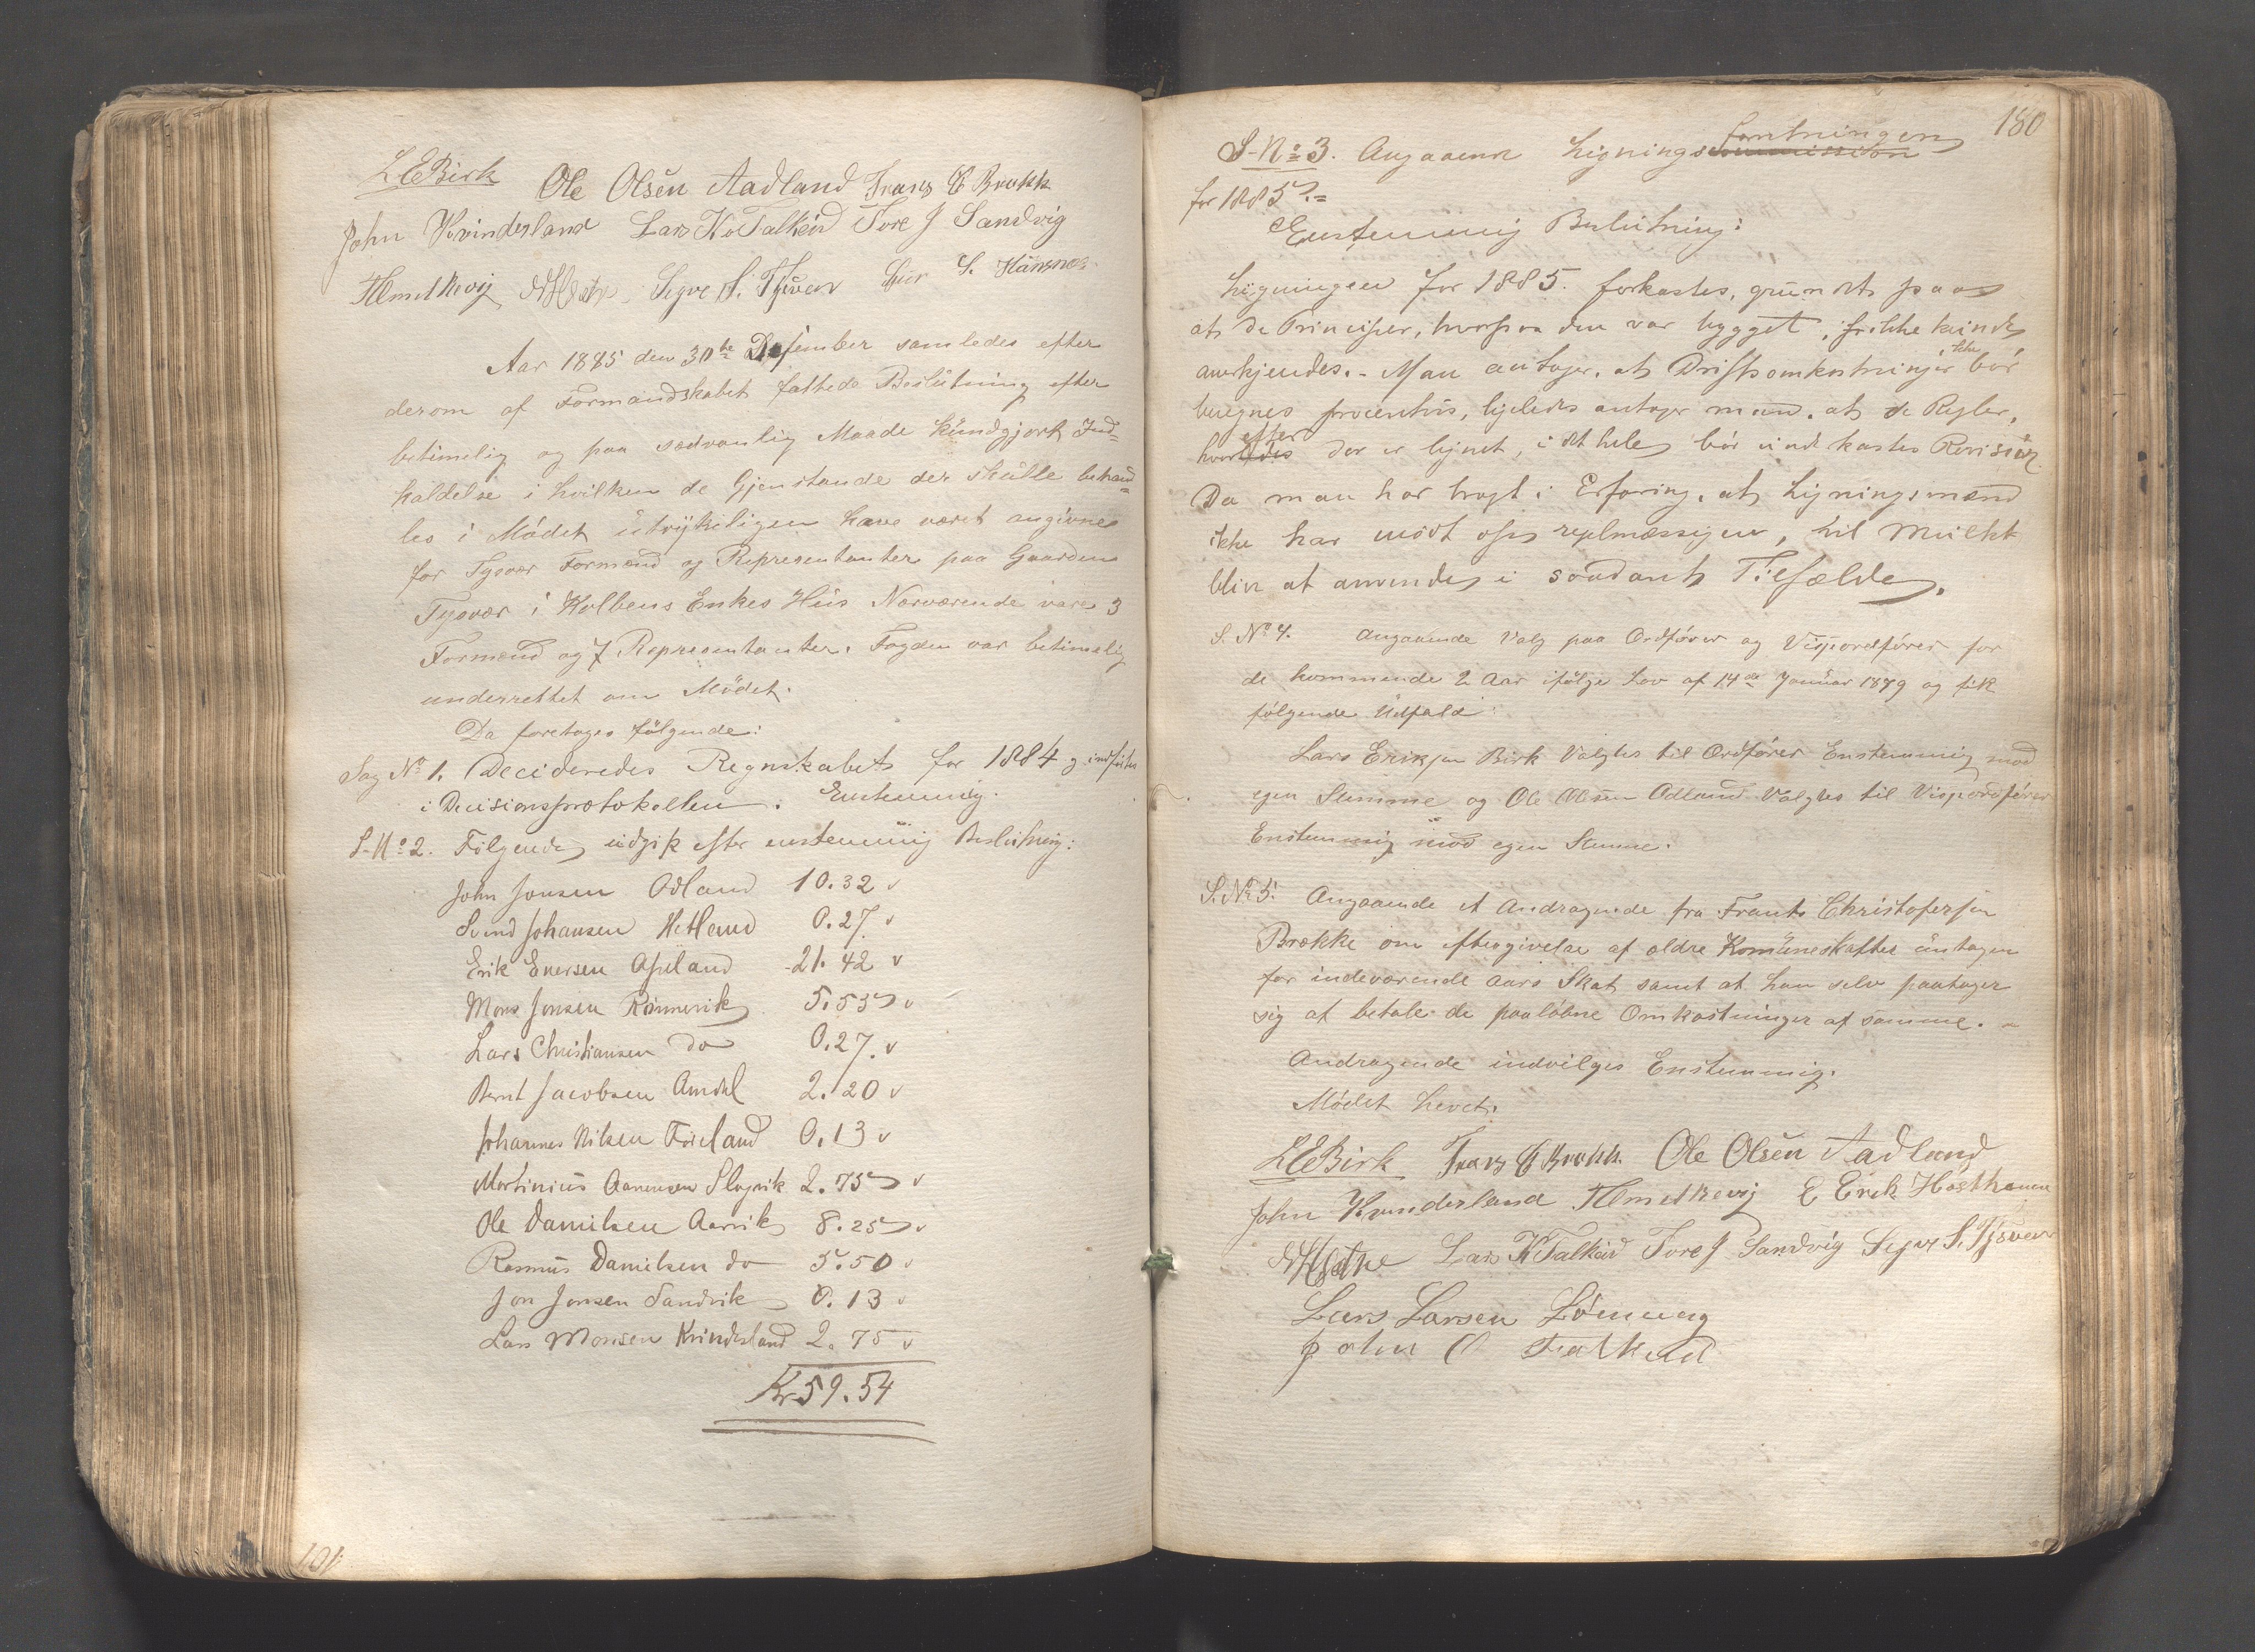 LEBirk Ole Olsen Aadland Frans C Brekk
John Kvindesland Lars K Falkeid Tore J Sandvig
Segve S. Tysver S. Hansnes
Aar 1885 den 30te Desember samledes efter
derom af Formandskabet fattede Beslutning efter
betimelig og paa sædvanlig Maade kundgjort Ind-
kaldelse i hvilken de Gjenstande der skulle behand-
les i Mødet utrykeligen have været angivne
for Tysvær Formænd og Representanter paa Gaarden
Tysvær i Kolbens Enkes Hus Nærværende vare 3
Formænd og 7 Representanter. Fogden var betimelig
underrettet om Mødet.
Da foretages følgende:
Sag No 1. Decideredes Regnskabet for 1884 og indførtes
i Decisionsprotokollen. Enstemmig.
S-No 2. Følgende udgik efter enstemmig Beslutning:
John Jonsen Odland 10.32 v
Svend Johansen Hetland 0.27 v
Erik Enersen Apeland 21.42 v
Mons Jonsen Rønnevik 5.55 v
Lars Christiansen do 0.27 v
Bernt Jacobsen Amdal 2.20 v
Johannes Nilsen Føreland 0.13 v
Martinius Aanensen Slogvik 2.75 v
Ole Danielsen Aarvik 8.25 v
Rasmus Danielsen do 5.50 v
Jon Jonsen Sandvik 0.13 v
Lars Monsen Kvindesland 2.75 v
Kr 59.54
101
180
S-No 3. Angaaende Ligningsforretningen
for 1885.=
Enstemmig Beslutning:
Ligningen for 1885. forkastes, grundet paa
at de Principer, hvorpaa den var bygget, ikke kunde
anerkjendes. - Man antager, at Driftsomkostninger ikke bør
beregnes procentvis, ligeledes antager man, at de Regler,
hvorefter der er lignet, i det hele bør underkastes Revision
Da man har bragt i Erfaring, at Ligningsmænd
ikke har mødt op regelmæssigen, vil Mulkt
blive at anvendes i saadant Tilfælde.
S. No 4. Angaaende Valg paa Ordfører og Viseordfører for
de kommende 2 Aar ifølge Lov af 14de Januar 1879 og fik
følgende Udfald:
Lars Eriksen Birk Valgtes til Ordfører Enstemmig mod
egen Stemme og Ole Olsen Odland Valgtes til Viseordfører
Enstemmig mod egen Stemme.
S. No 5. Angaaende et Andragende fra Frants Christofersen
Brække om eftergivelse af ældre Komuneskatter untagen
for indeværende Aars Skat samt at han selv paatager
sig at betale de paaløbne Omkostninger af samme.
Andragende indvilges Enstemmig.
Mødet hevet.
LEBirk Frans C Brekk. Ole Olsen Aadland
John Kvindesland E Erek Hosthamm
Lars K Falkeid Tore J Sandvig Segve S. Tysver
Lars Larsen Lønning
John O Falkeid